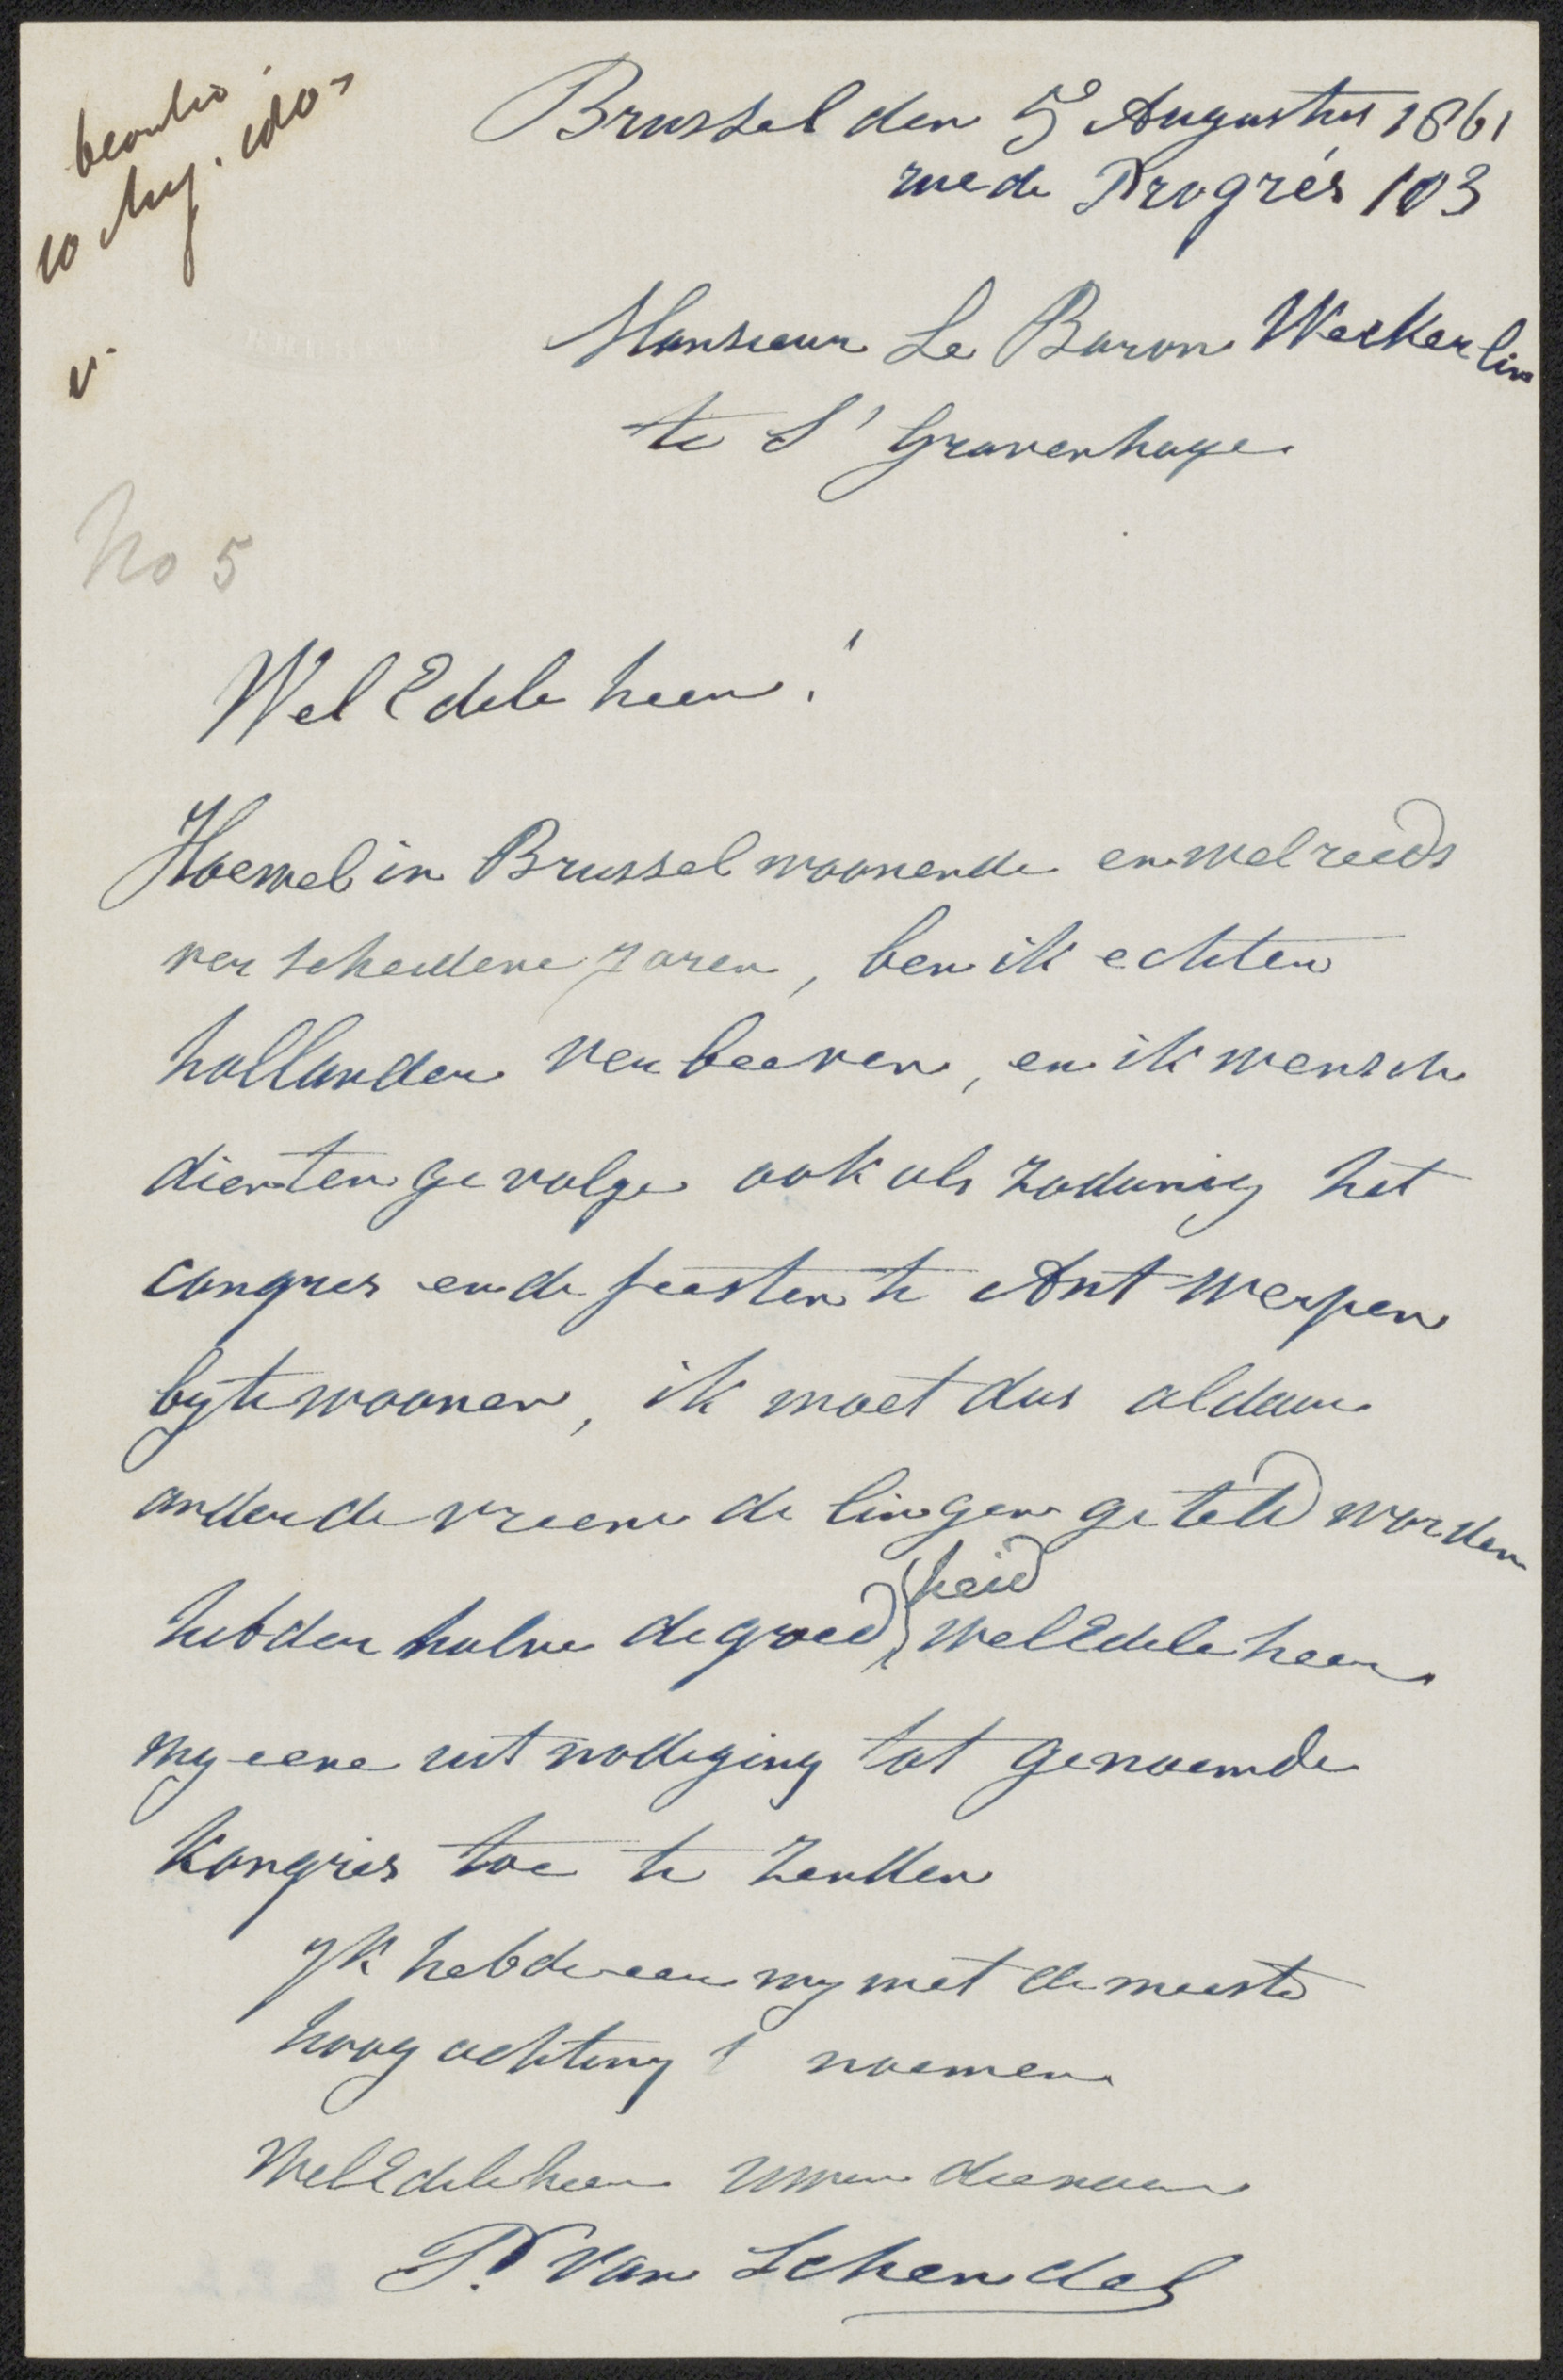 10 Aug.
No 5
Brussel den 5e Augustus 1861
rue de Progrés 103
Monsieur Le Baron Weckerlin
te S' Gravenhage
Wel Edele heer!
Hoewel in Brussel woonende en wel reeds
verscheidene Jaren, ben ik echter
hollander verbleeven, en ik wensch
dientengevolge ook als zodanig het
congres en de feesten te Antwerpen
bytewoonen, ik moet dus aldaar
onder de vreemdelingen geteld worden
heb derhalve de goedheid WelEdele heer
my eene uitnodiging tot genoemde
Kongres toe te zenden
Ik heb de eer my met de meeste
hoogachting te noemen
WelEdele heer uwen dienaar
P. van Schendel